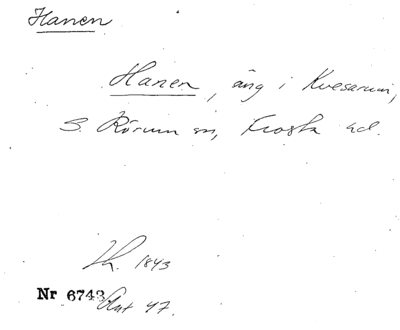 Hanen
Hanen, äng i Kvesarum,
S. Rörum sn, Frosta hd.
1843
Nr 6743 Akt 47.